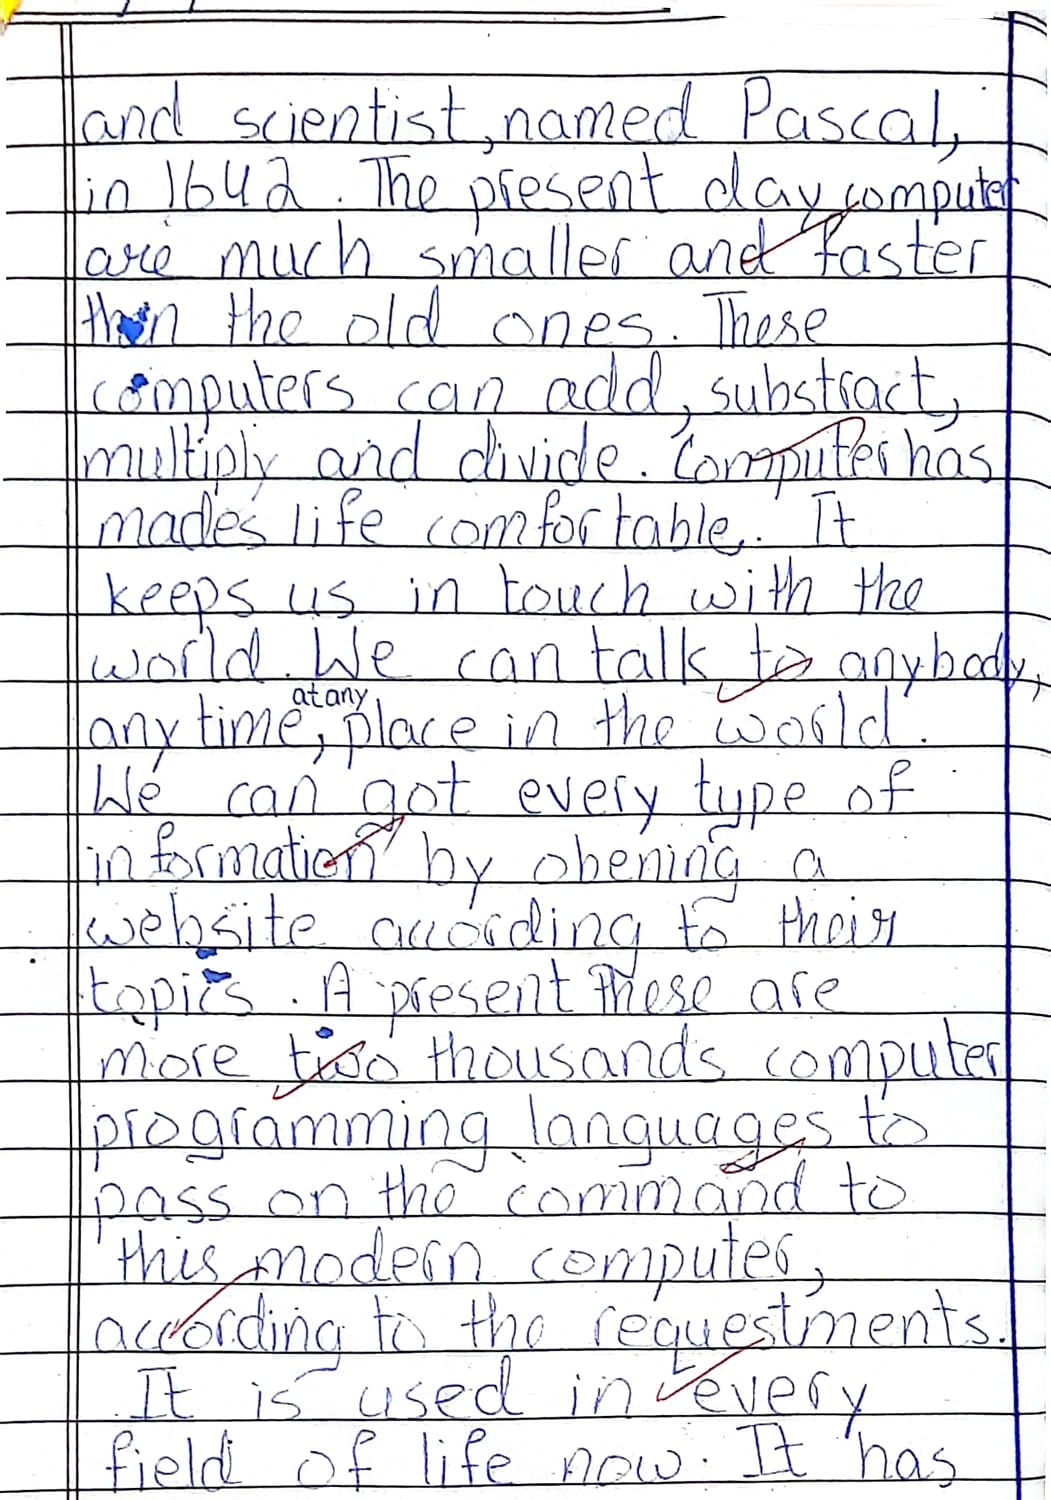 and scientist, named Pascal,
in 1642. The present day computer
are much smaller and faster
than the old ones. These
computers can add, substract,
multiply and divide. Computer has
mades life comfortable. It
keeps us in touch with the
world. We can talk to anybody,
at any
any time, place in the world.
We can got every type of
information by obening a
website according to their
topics. A present these are
more two thousands computer
programming languages to
pass on the command to
this modern computer,
according to the requestments.
It is used in every
field of life now. It has